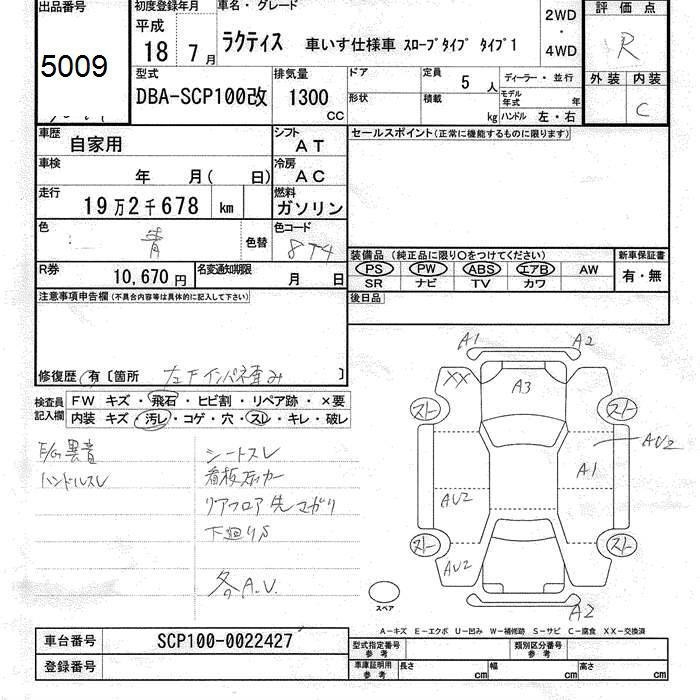 出品番号
5009
初度登録年月
平成
18 7 月
車名・グレード
ラクティス 車いす仕様車 スロープタイプ タイプ1
2WD
・
4WD
評価点
R
外装 内装
C
型式
DBA-SCP100改
排気量
1300
CC
ドア
形状
定員
5 人
積載
kg
ディーラー・並行
モデル年式 年
ハンドル 左・右
車歴
自家用
シフト
AT
車検
年 月( 日)
冷房
AC
走行
19万2千678 km
燃料
ガソリン
色
青
色替
色コード
8T4
R券
10,670円
名変通知期限
月 日
セールスポイント(正常に機能するものに限ります)
装備品 (純正品に限り○をつけてください)
新車保証書
PS PW ABS エアB AW
有・無
SR ナビ TV カワ
後日品
注意事項申告欄(不具合内容等は具体的に記入して下さい)
修復歴 有 〔箇所 左Fインパネ歪み 〕
検査員記入欄
FW キズ・飛石・ヒビ割・リペア跡・×要
内装 キズ・汚レ・コゲ・穴・スレ・キレ・破レ
E/G異音
ハンドルスレ
シートスレ
看板ステッカー
リアフロア先マガリ
下廻りS
各A.U.
A1
A2
XX
A3
スト
スト
AU2
A1
AU2
スト
スト
AU2
A2
スペア
A-キズ E-エクボ U-凹み W-補修跡 S-サビ C-腐食 XX-交換済
車台番号
SCP100-0022427
登録番号
型式指定番号
参考
類別区分番号
参考
車庫証明用
参考
長さ cm
幅 cm
高さ cm